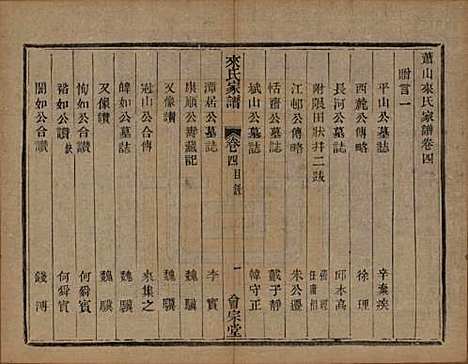 蕭山來氏家譜卷四
贈言一
平山公墓誌 辛棄疾
西麓公傳略 徐理
長河公墓誌 邱木高
附限田狀幷二跋
江邨公傳略 朱公遷
恬齋公墓誌 戴子靜
斌山公墓誌 韓守正
來氏家譜 卷四目錄 一 會宗堂
潭居公墓誌 李實
崇順公壽藏記 魏驥
又像讚 魏驥
冠山公合傳 來集之
皞如公墓誌 魏驥
又像讚 魏驥
恂如公合讚 何舜賓
裕如公讚 何舜賓
闇如公合讚 錢溥